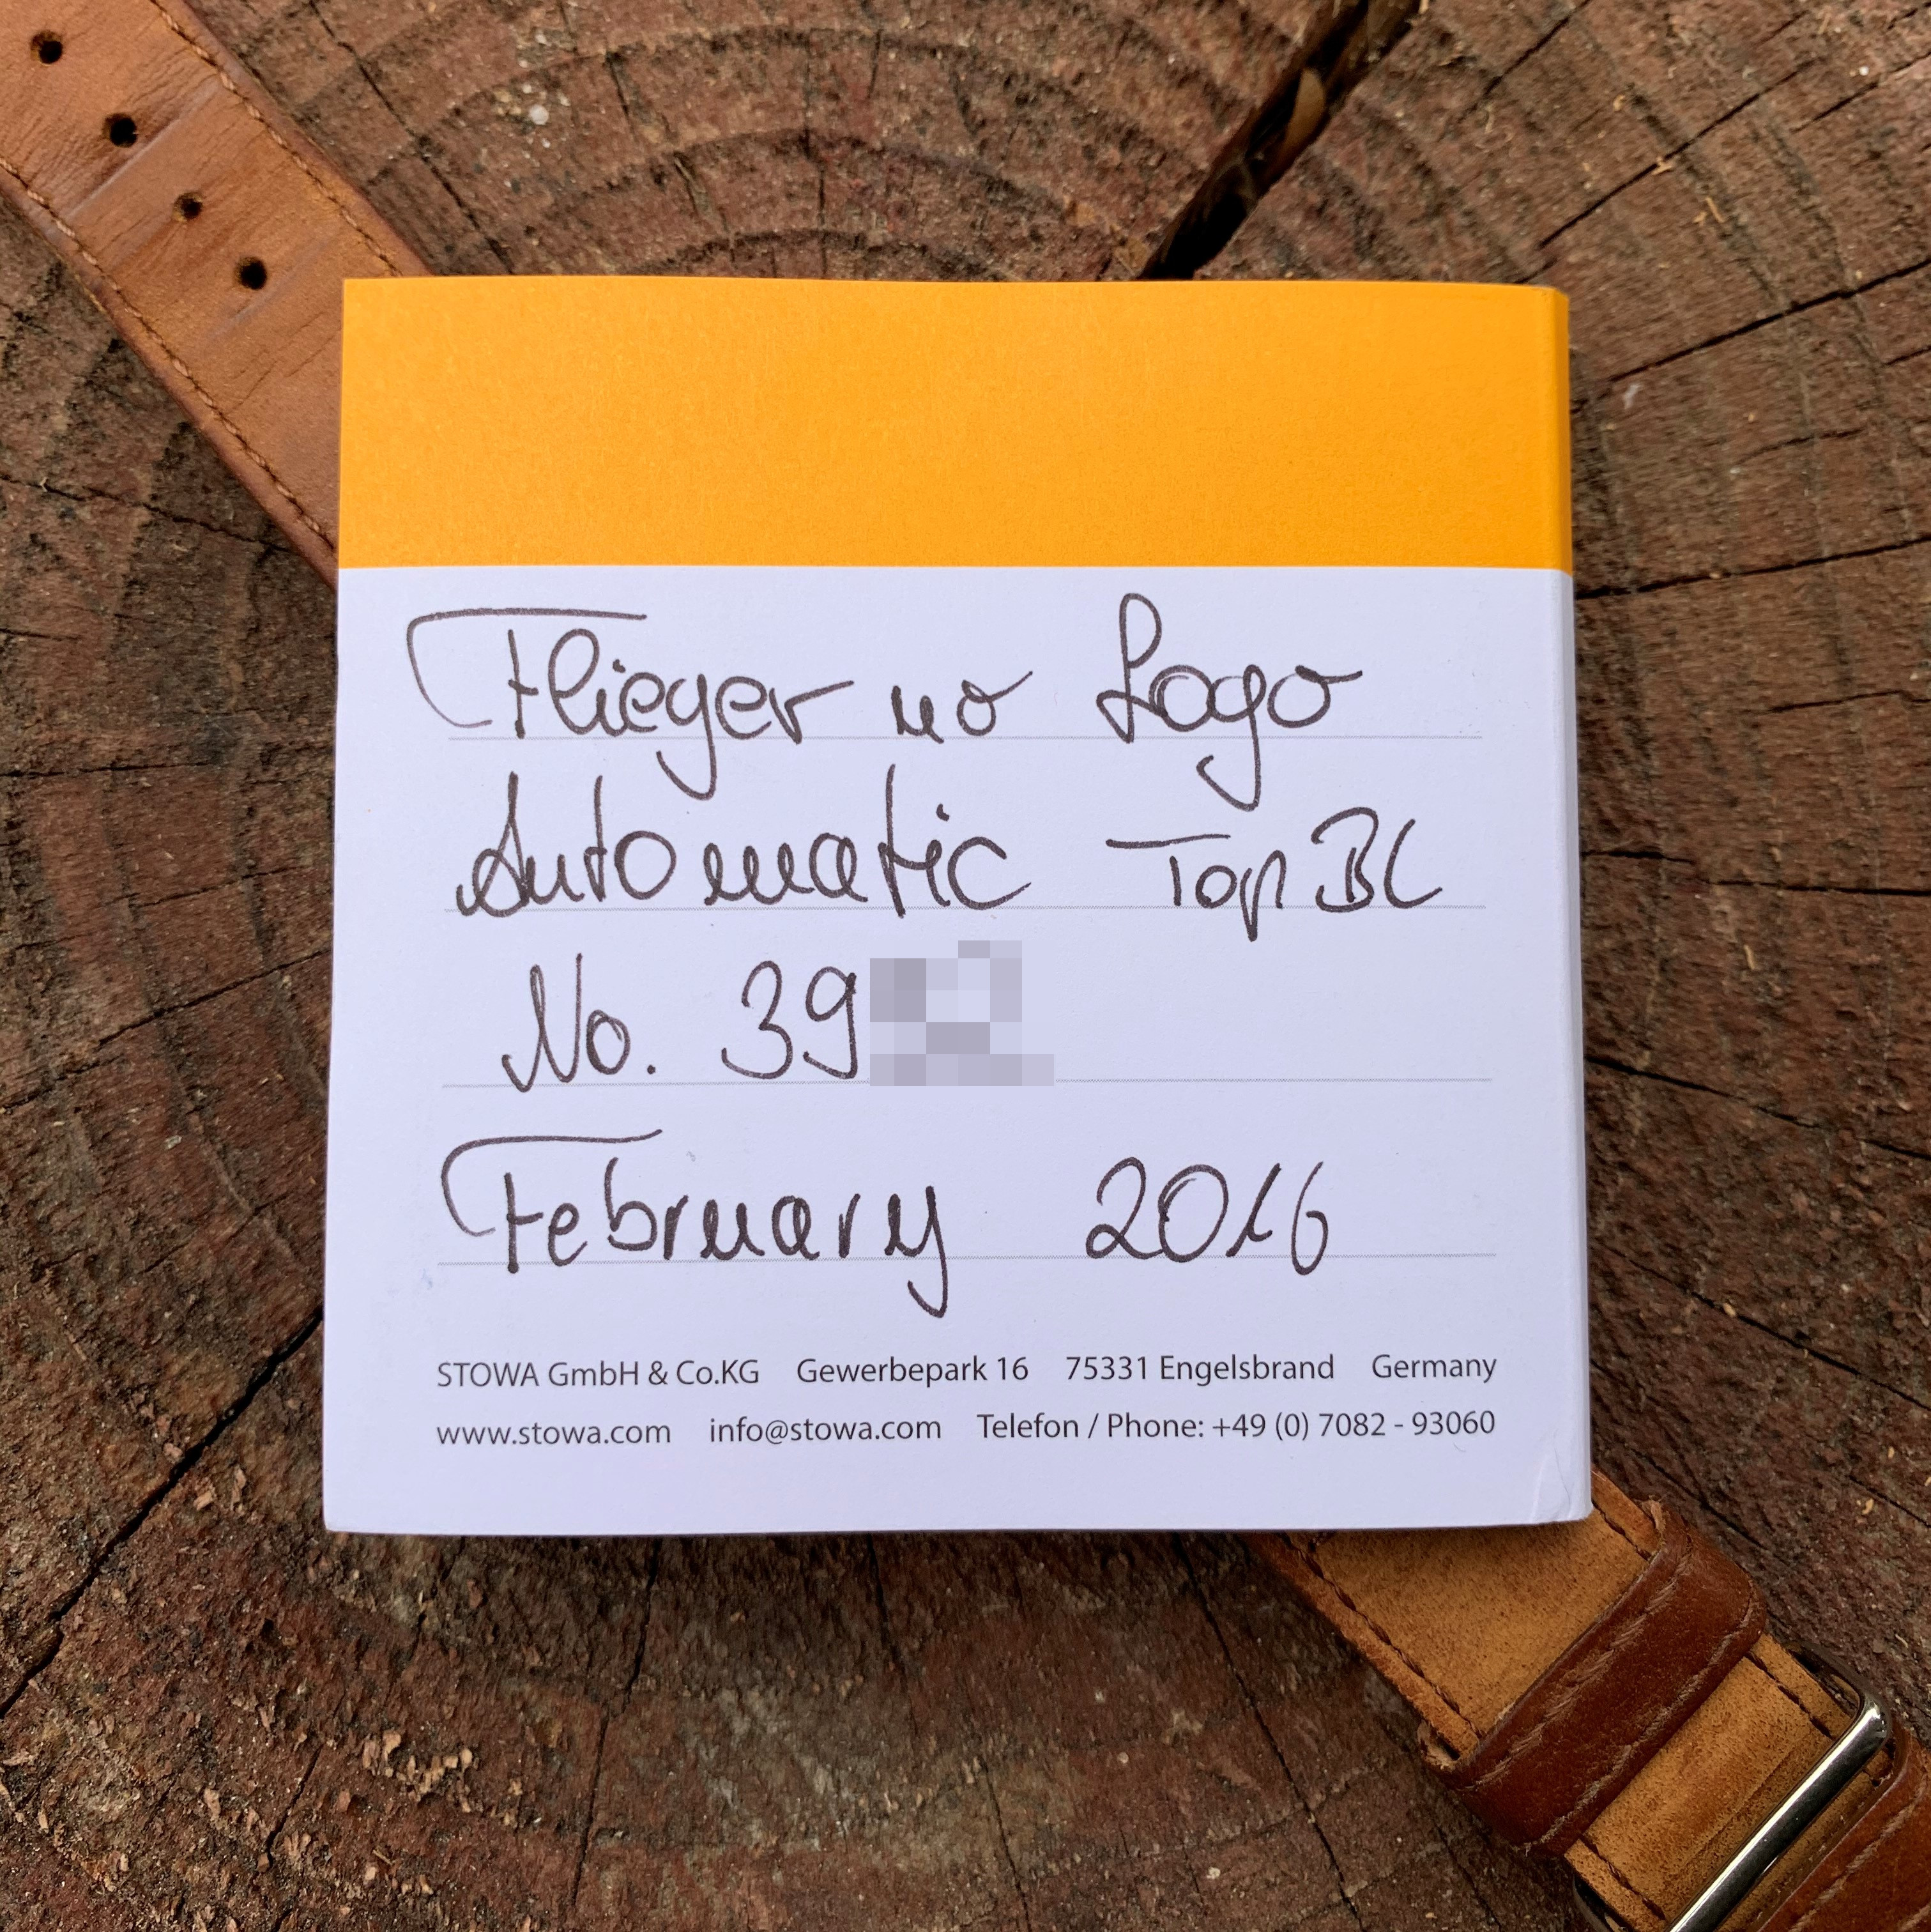 Flieger no Logo
Automatic Top BC
No. 39
February 2016
STOWA GmbH & Co.KG Gewerbepark 16 75331 Engelsbrand Germany
www.stowa.com info@stowa.com Telefon / Phone: +49 (0) 7082 - 93060